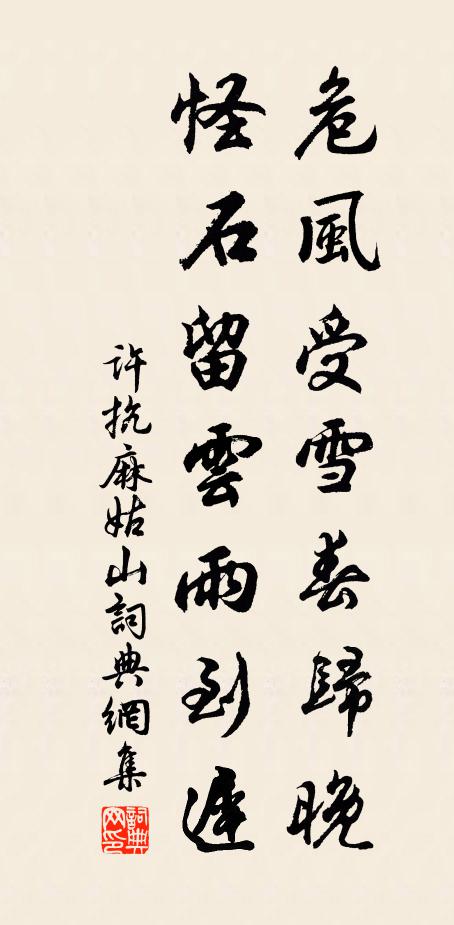 危風受雪春歸晚
怪石留雲雨到遲
許抗麻姑山詞典網集
詞典網印